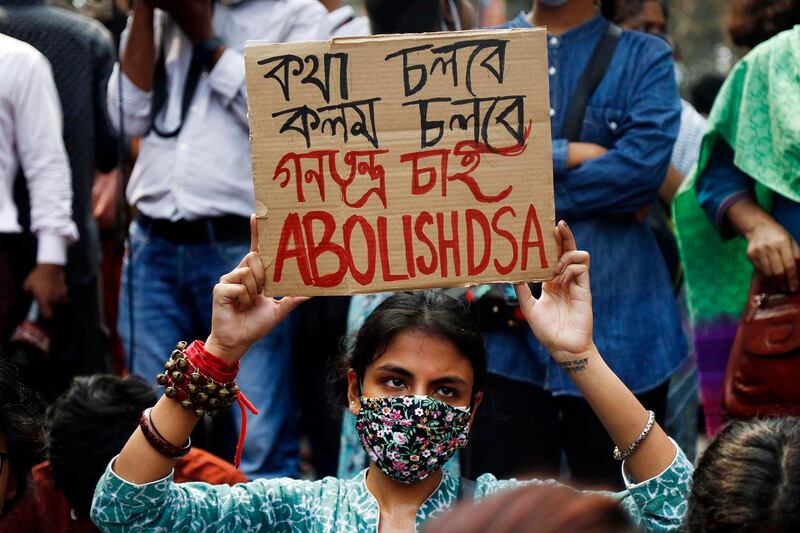 কথা চলবে
কলম চলবে
গনতন্ত্র চাই
ABOLISH DSA